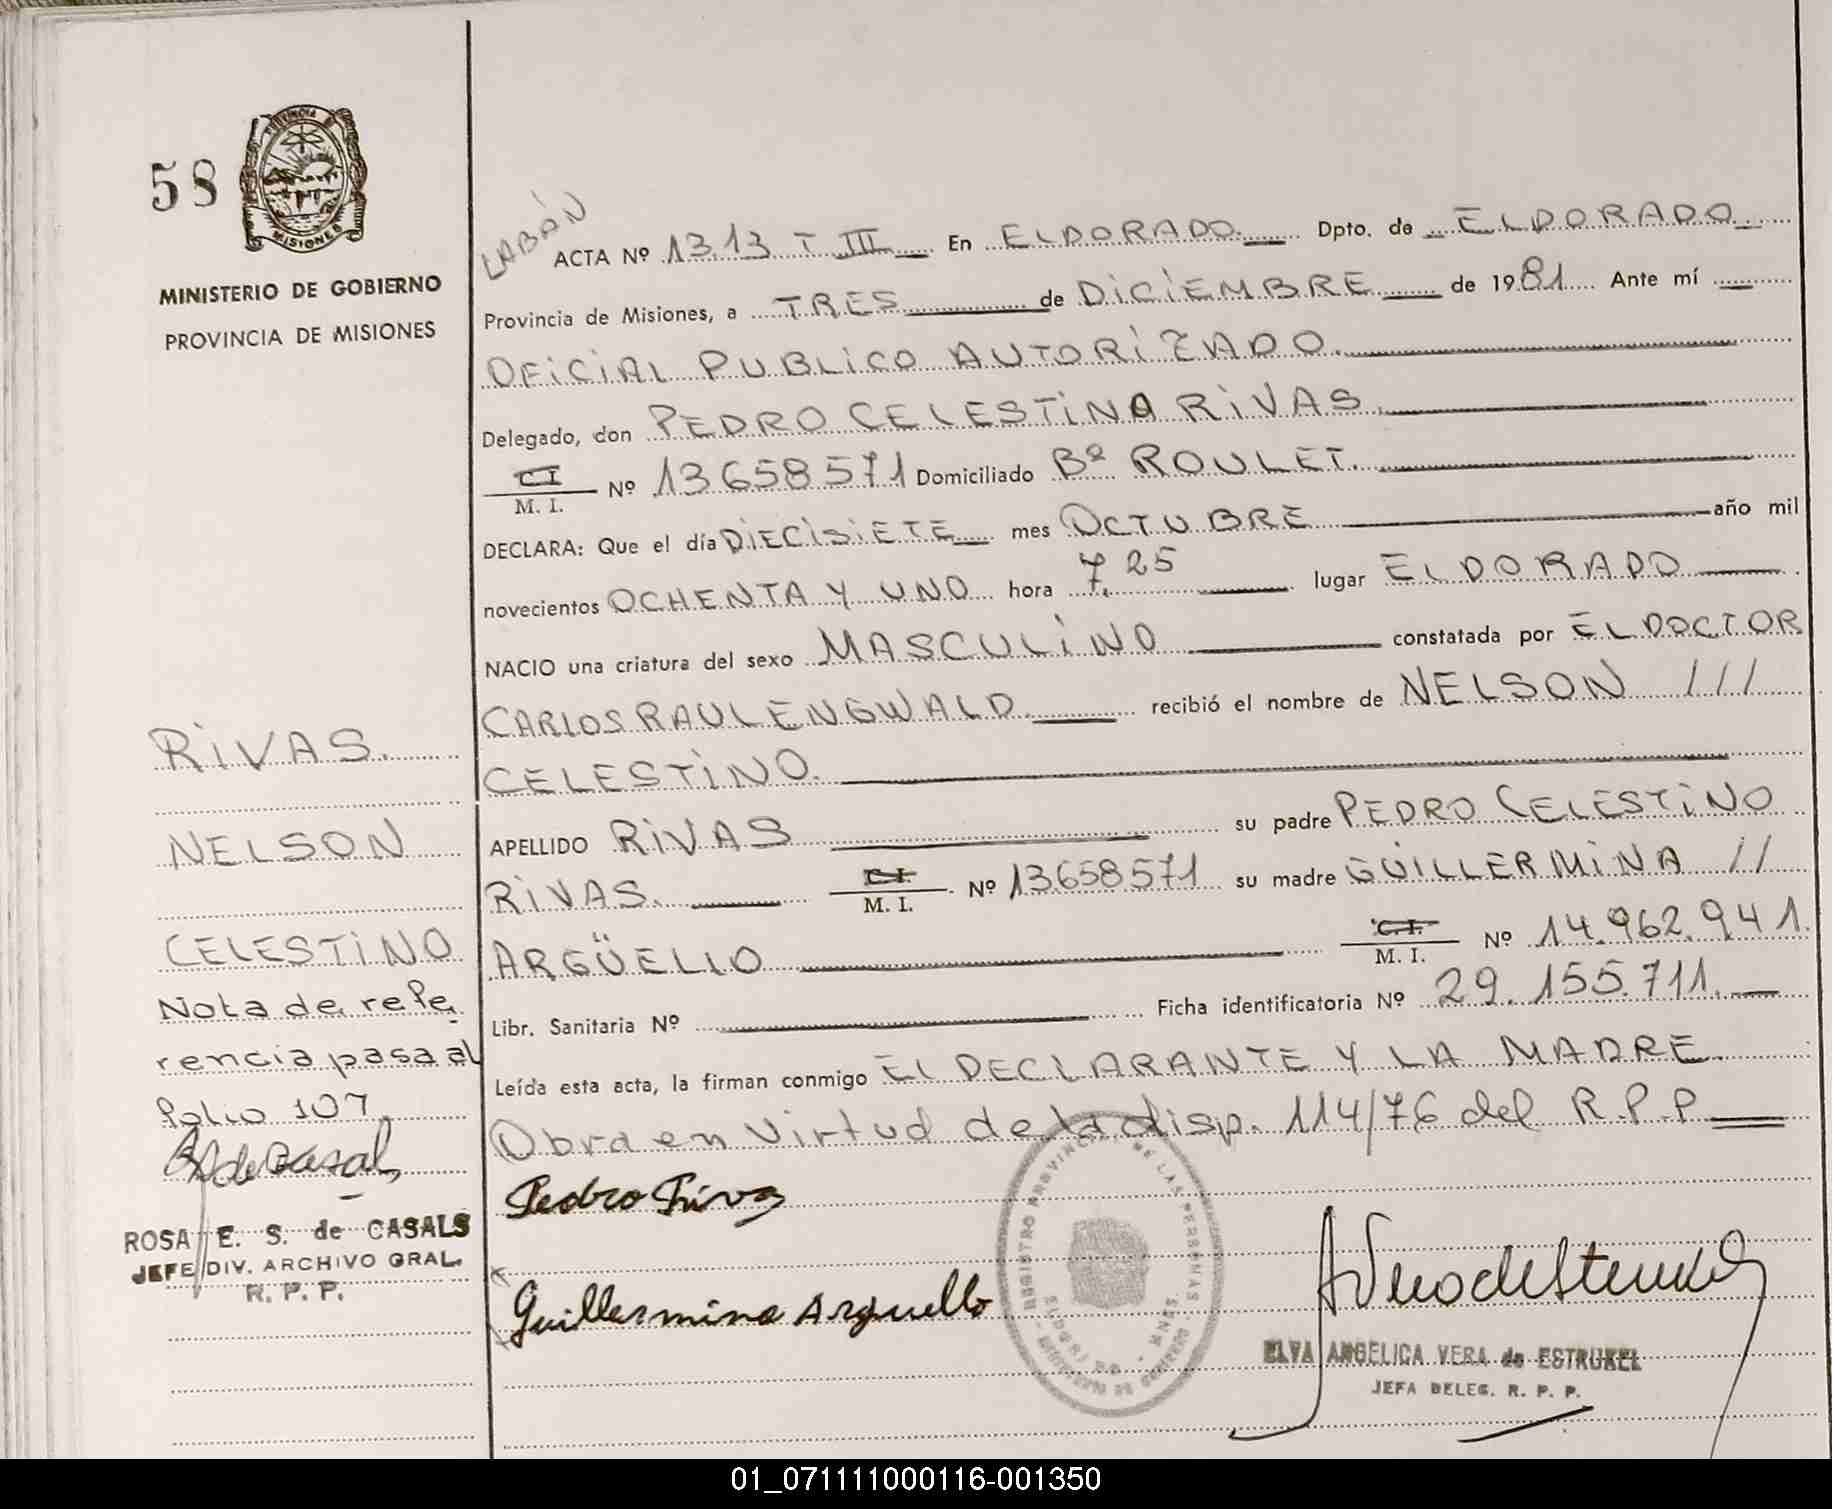 58
PROVINCIA DE
MISIONES
MINISTERIO DE GOBIERNO
PROVINCIA DE MISIONES
RIVAS.
NELSON
CELESTINO
Nota de refe
rencia pasa al
folio 107.
ROSA E. S. de CASALS
JEFE DIV. ARCHIVO GRAL.
R. P. P.
LABÁN
ACTA Nº 1313 T III En ELDORADO. Dpto. de ELDORADO
Provincia de Misiones, a TRES de DICIEMBRE de 1981 Ante mí
OFICIAL PUBLICO AUTORIZADO.
Delegado, don PEDRO CELESTINO RIVAS.
C I
M. I. Nº 13658571 Domiciliado Bº ROULET.
DECLARA: Que el día DIECISIETE mes OCTUBRE año mil
novecientos OCHENTA Y UNO hora 7,25 lugar ELDORADO
NACIO una criatura del sexo MASCULINO constatada por EL DOCTOR
CARLOS RAUL ENGWALD. recibió el nombre de NELSON ///
CELESTINO.
APELLIDO RIVAS su padre PEDRO CELESTINO
RIVAS. C.I. M. I. Nº 13658571 su madre GUILLERMINA //
ARGÜELLO C.I. M. I. Nº 14.962.941.
Libr. Sanitaria Nº Ficha identificatoria Nº 29.155.711.
Leída esta acta, la firman conmigo EL DECLARANTE Y LA MADRE
Obra en virtud de la disp. 114/76 del R.P.P
Pedro Rivas
Guillermina Arguello
REGISTRO PROVINCIAL DE LAS PERSONAS
ELVA ANGELICA VERA de ESTRUKEL
JEFA DELEG. R. P. P.
01_071111000116-001350